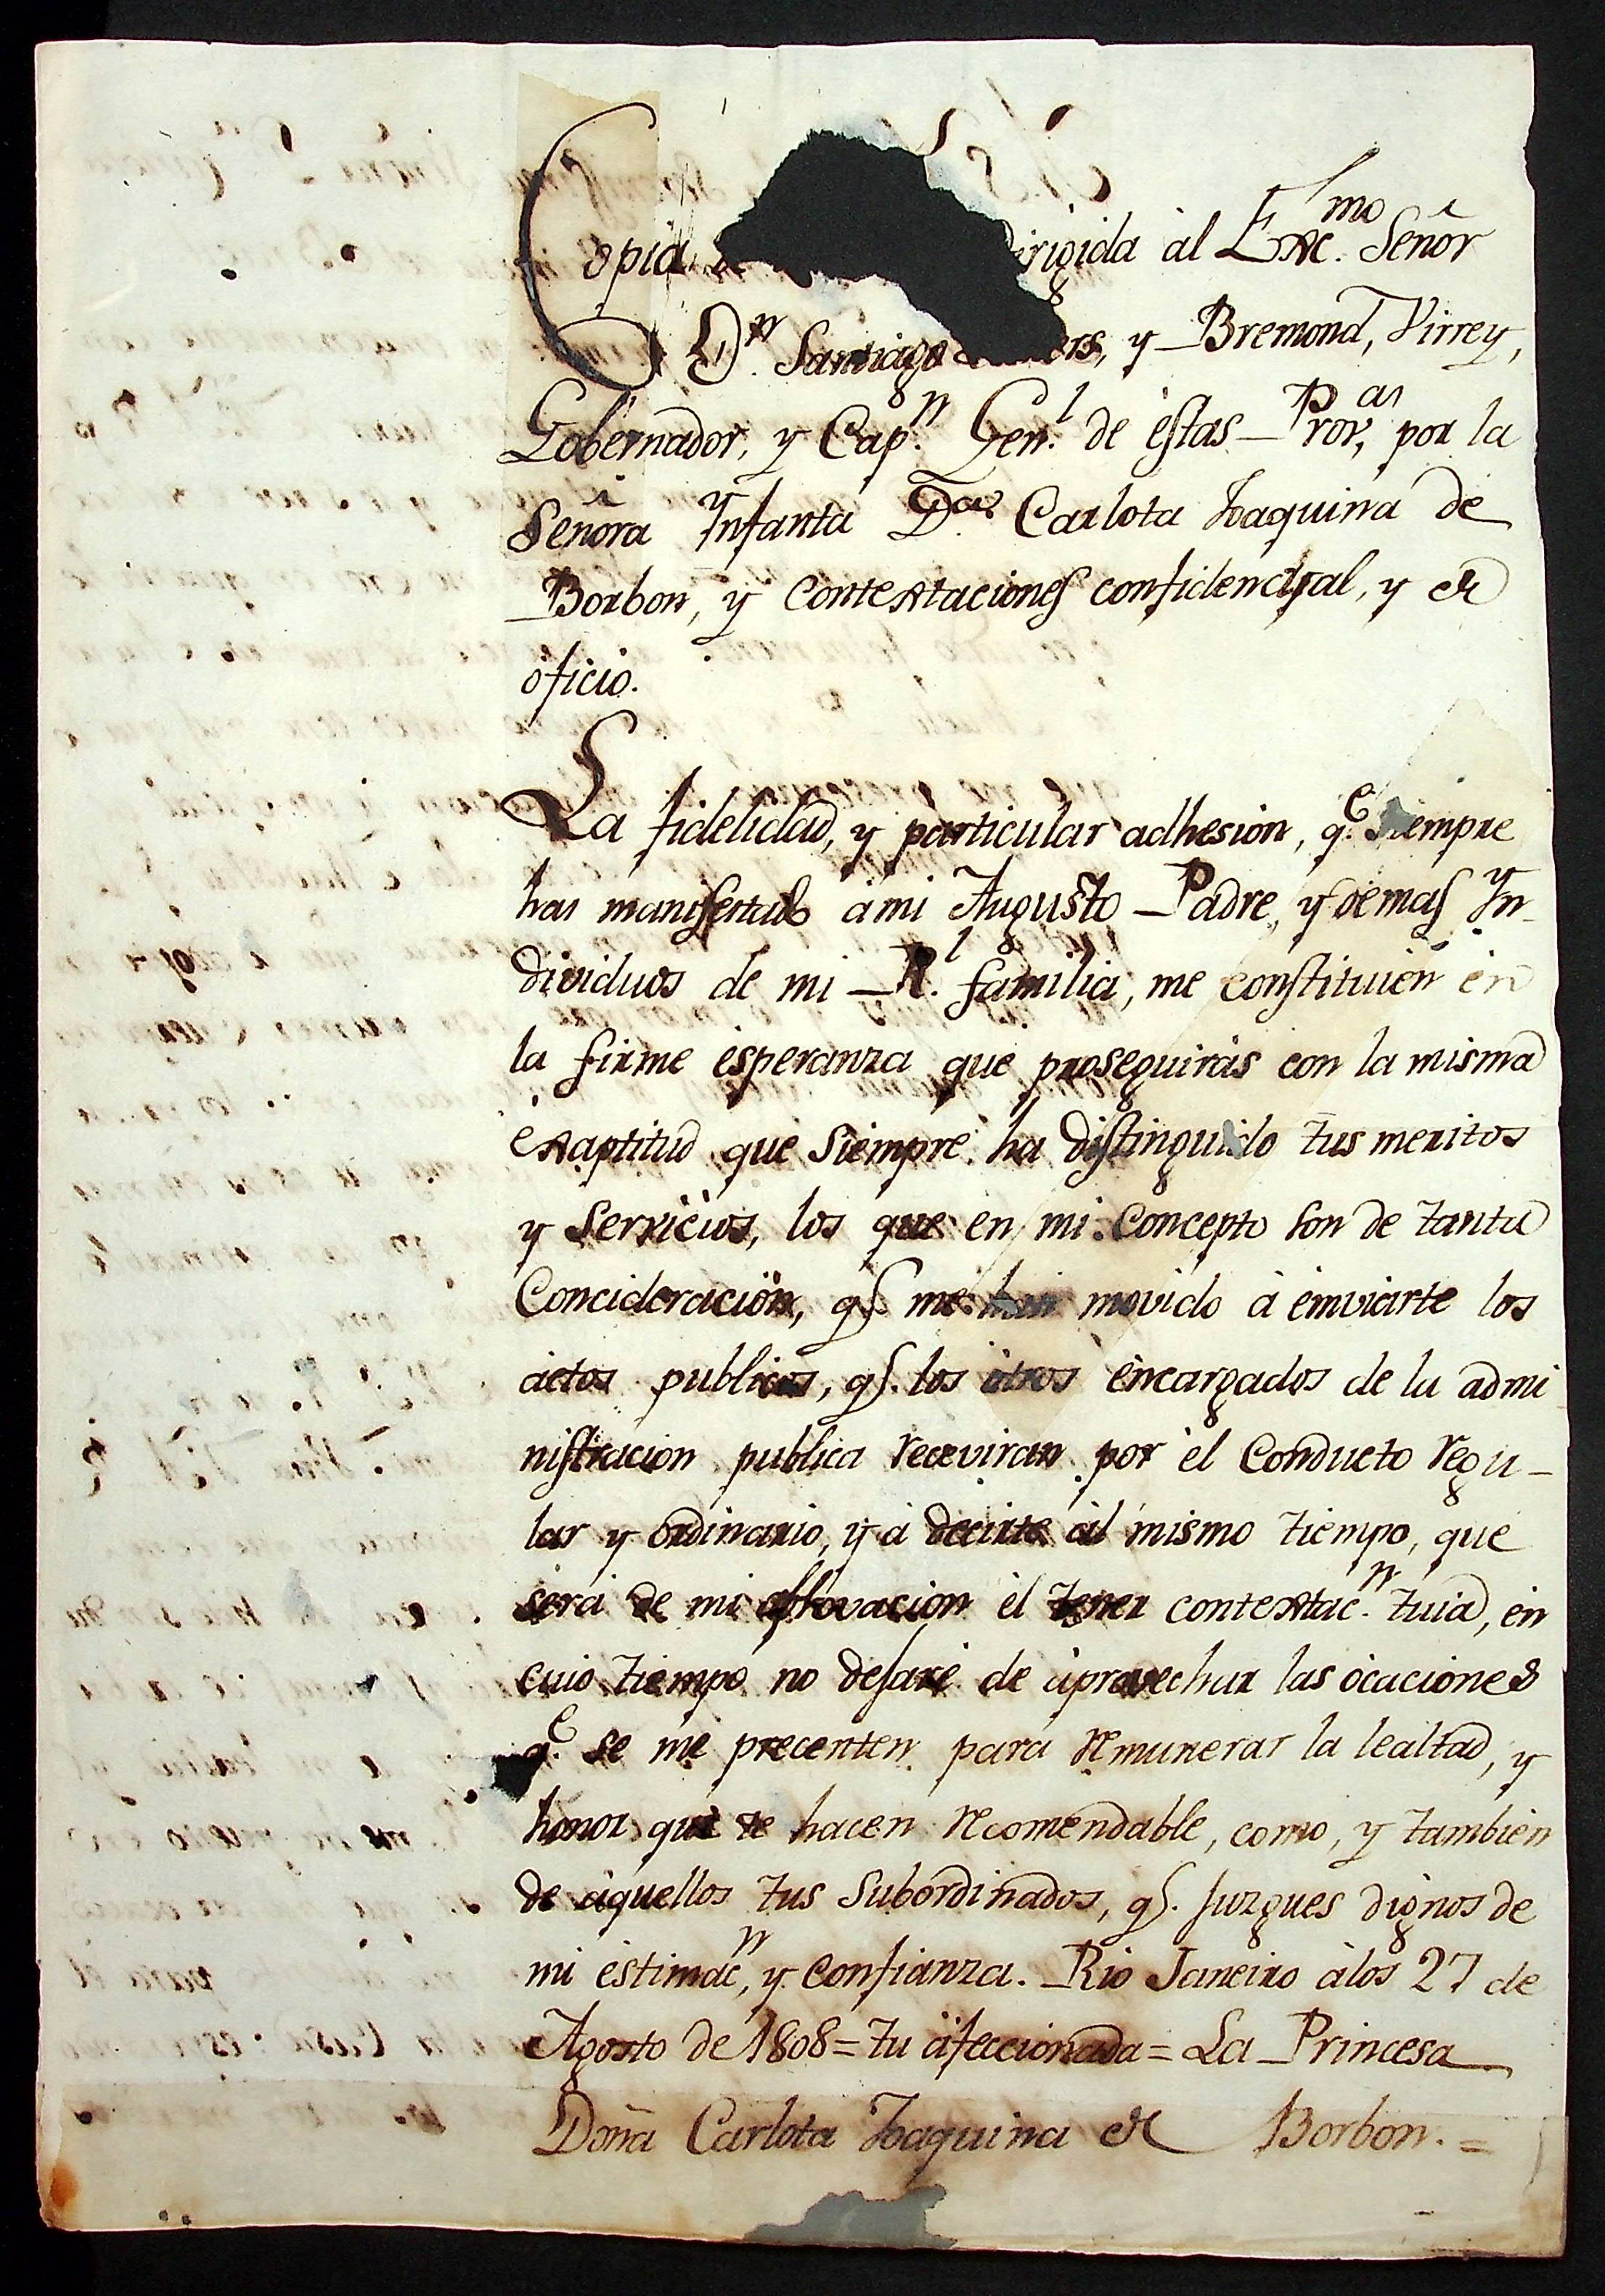 Copia dirigida àl Exc.mo Señor
Dn. Santiago y Bremond, Virrey,
Gobernador, y Cap.n Gen.l de èstas Prov.as por la
Señora Ynfanta Da. Carlota Joaquina de
Borbon, y Contextaciones confidencial, y de
òficio.
La fidelidad, y particular adhesion, q.e siempre
has manifestado à mi Augusto Padre, y demas Yn-
dividuos de mi R.l familia, me constituien èn
la firme èsperanza que proseguiràs con la misma
èxaptitud que siempre ha distinguido tus meritos
y Servicios, los que èn mi Concepto son de tanta
Concideraciòn, q.e me han movido à èmviarte los
àctos publicos, q.e los òtros èncargados de la admi
nistracion publica receviran por èl Conducto regu-
lar y ordinario, y à decirte àl mismo tiempo, que
serà de mi èl tener contextac.n tuia, èn
cuio tiempo no dejarè de àprovechar las òcaciones
q.e se me precenten para remunerar la lealtad, y
honor que te hacen recomendable, como, y tambien
de àquellos tus Subordinados, q.e juzgues dignos de
mi èstimac.n, y confianza. Rio Janeiro à los 27 de
Agosto de 1808 = tu àfeccionada = La Princesa
Doña Carlota Joaquina de Borbon. =